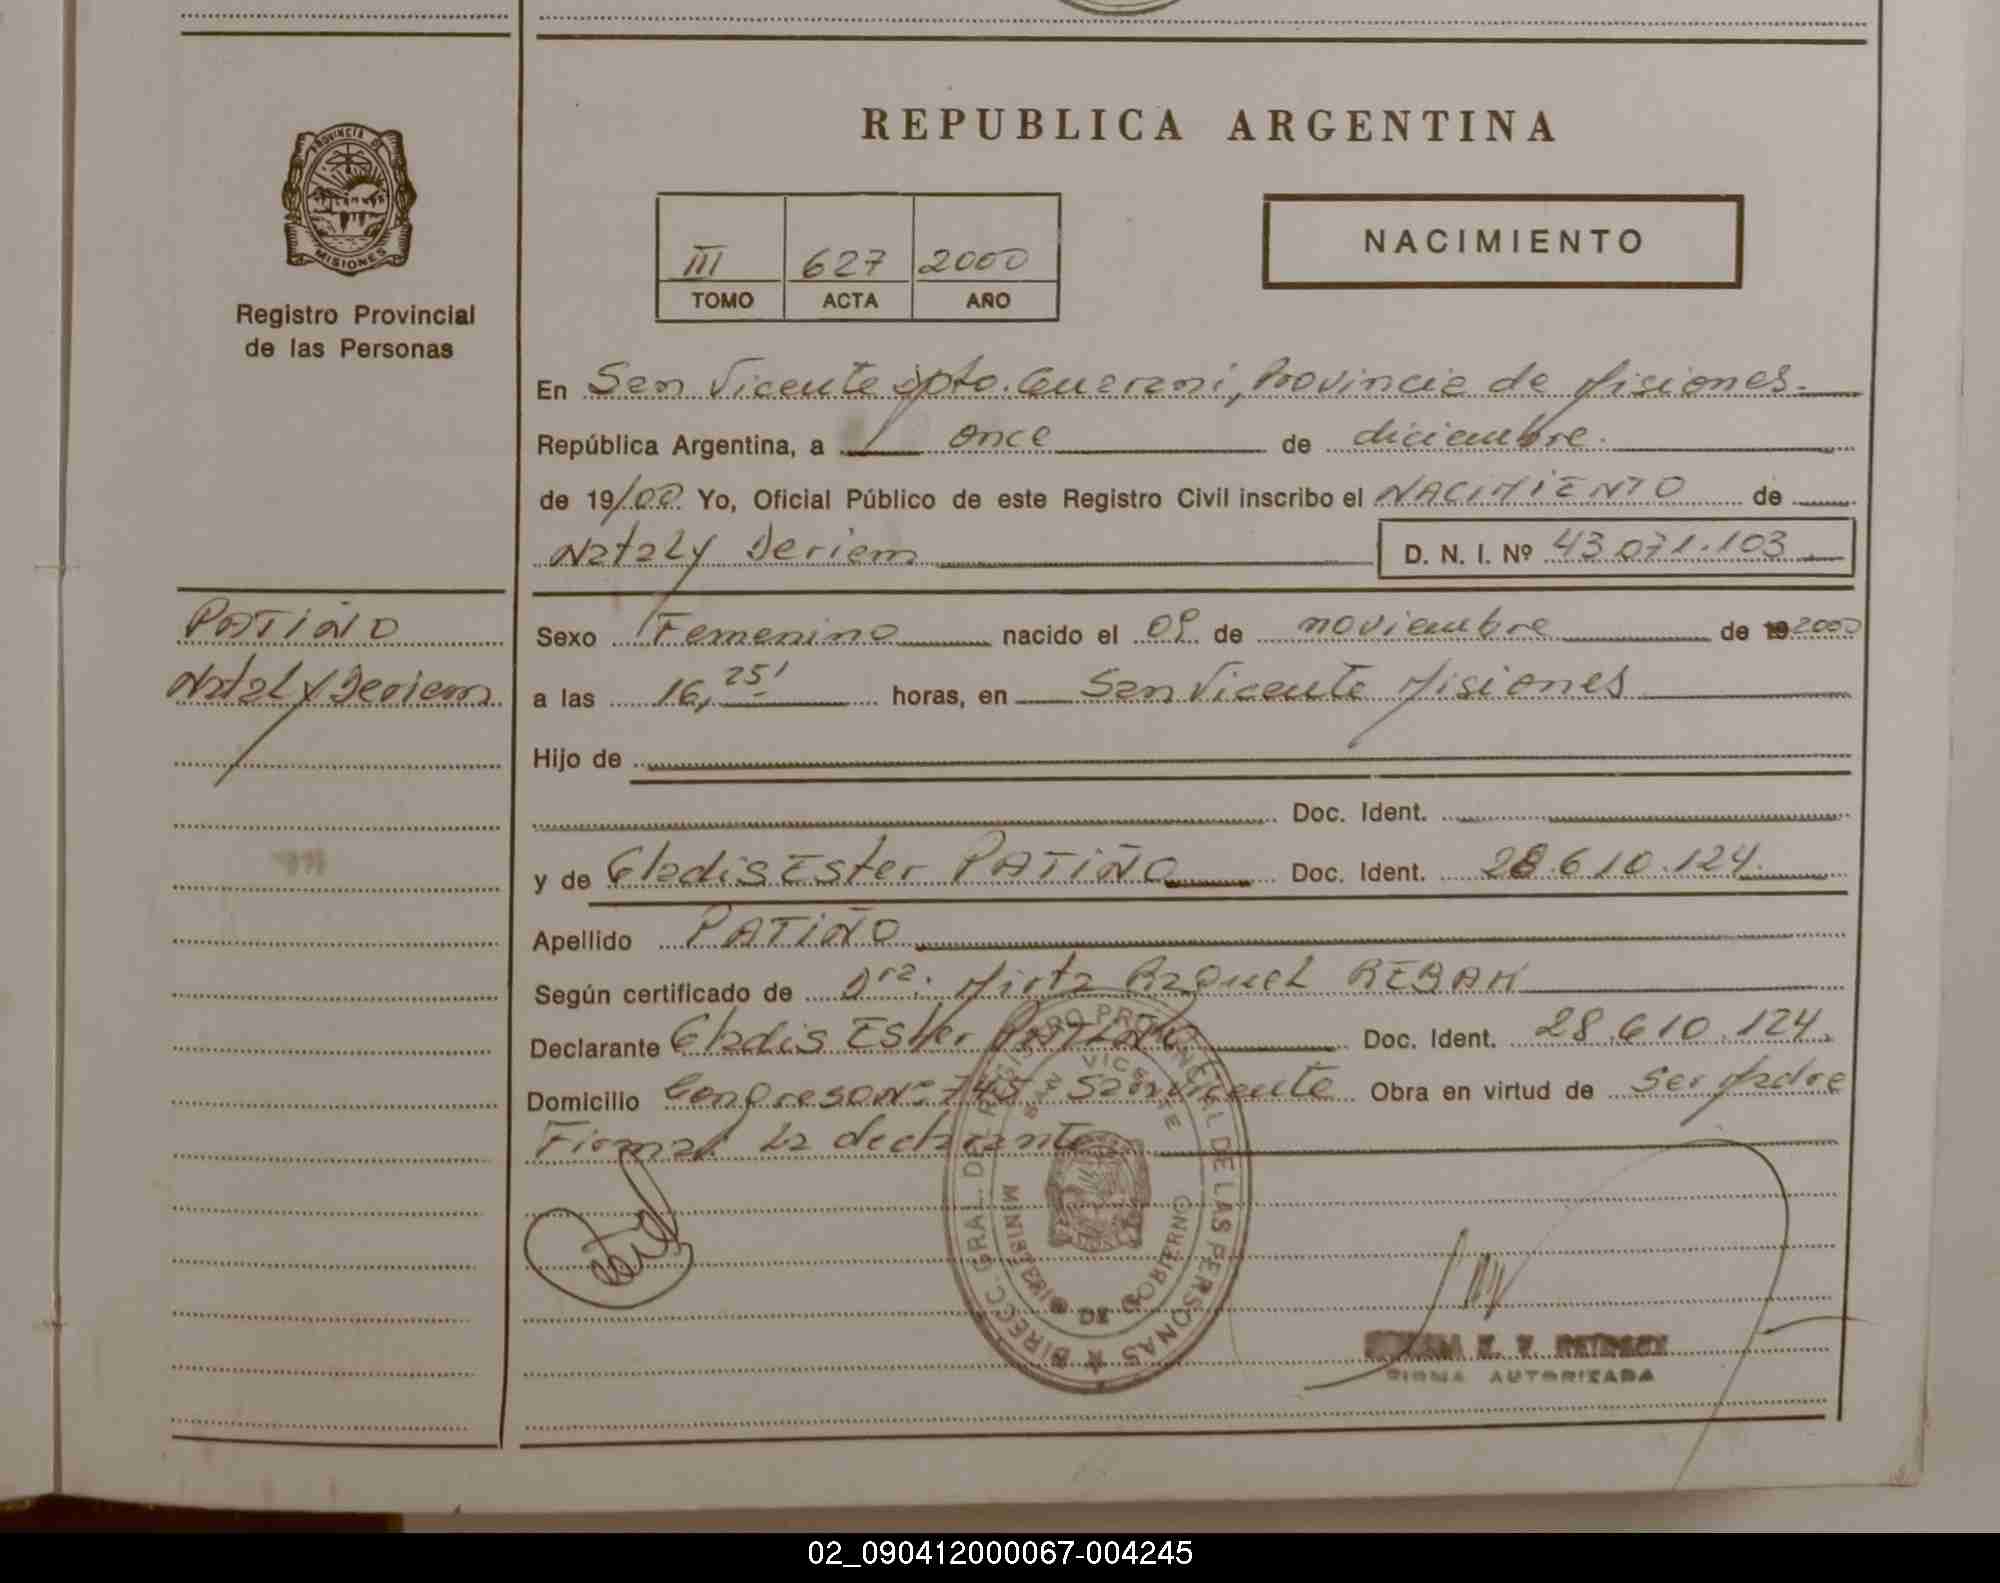 REPUBLICA ARGENTINA
PROVINCIA DE
MISIONES
Registro Provincial
de las Personas
III 627 2000
TOMO ACTA AÑO
NACIMIENTO
En San Vicente dpto. Guarani, Provincia de Misiones.
República Argentina, a once de diciembre.
de 19/00 Yo, Oficial Público de este Registro Civil inscribo el NACIMIENTO de
Nataly Deriem D. N. I. Nº 43.071.103
PATIÑO
Nataly Deriem
Sexo Femenino nacido el 09 de noviembre de 19 2000
a las 16,25' horas, en San Vicente Misiones
Hijo de
Doc. Ident.
y de Gladis Ester PATIÑO Doc. Ident. 28.610.124.
Apellido PATIÑO
Según certificado de Dra. Mirta Raquel REBAK
Declarante Gladis Ester PATIÑO Doc. Ident. 28.610.124.
Domicilio Congreso Nº 745 San Vicente Obra en virtud de Ser Madre
Firma: La declarante
DIRECC. GRAL. DEL REGISTRO PROVINCIAL DE LAS PERSONAS
SAN VICENTE
MINISTERIO DE GOBIERNO
FIRMA AUTORIZADA
02_090412000067-004245